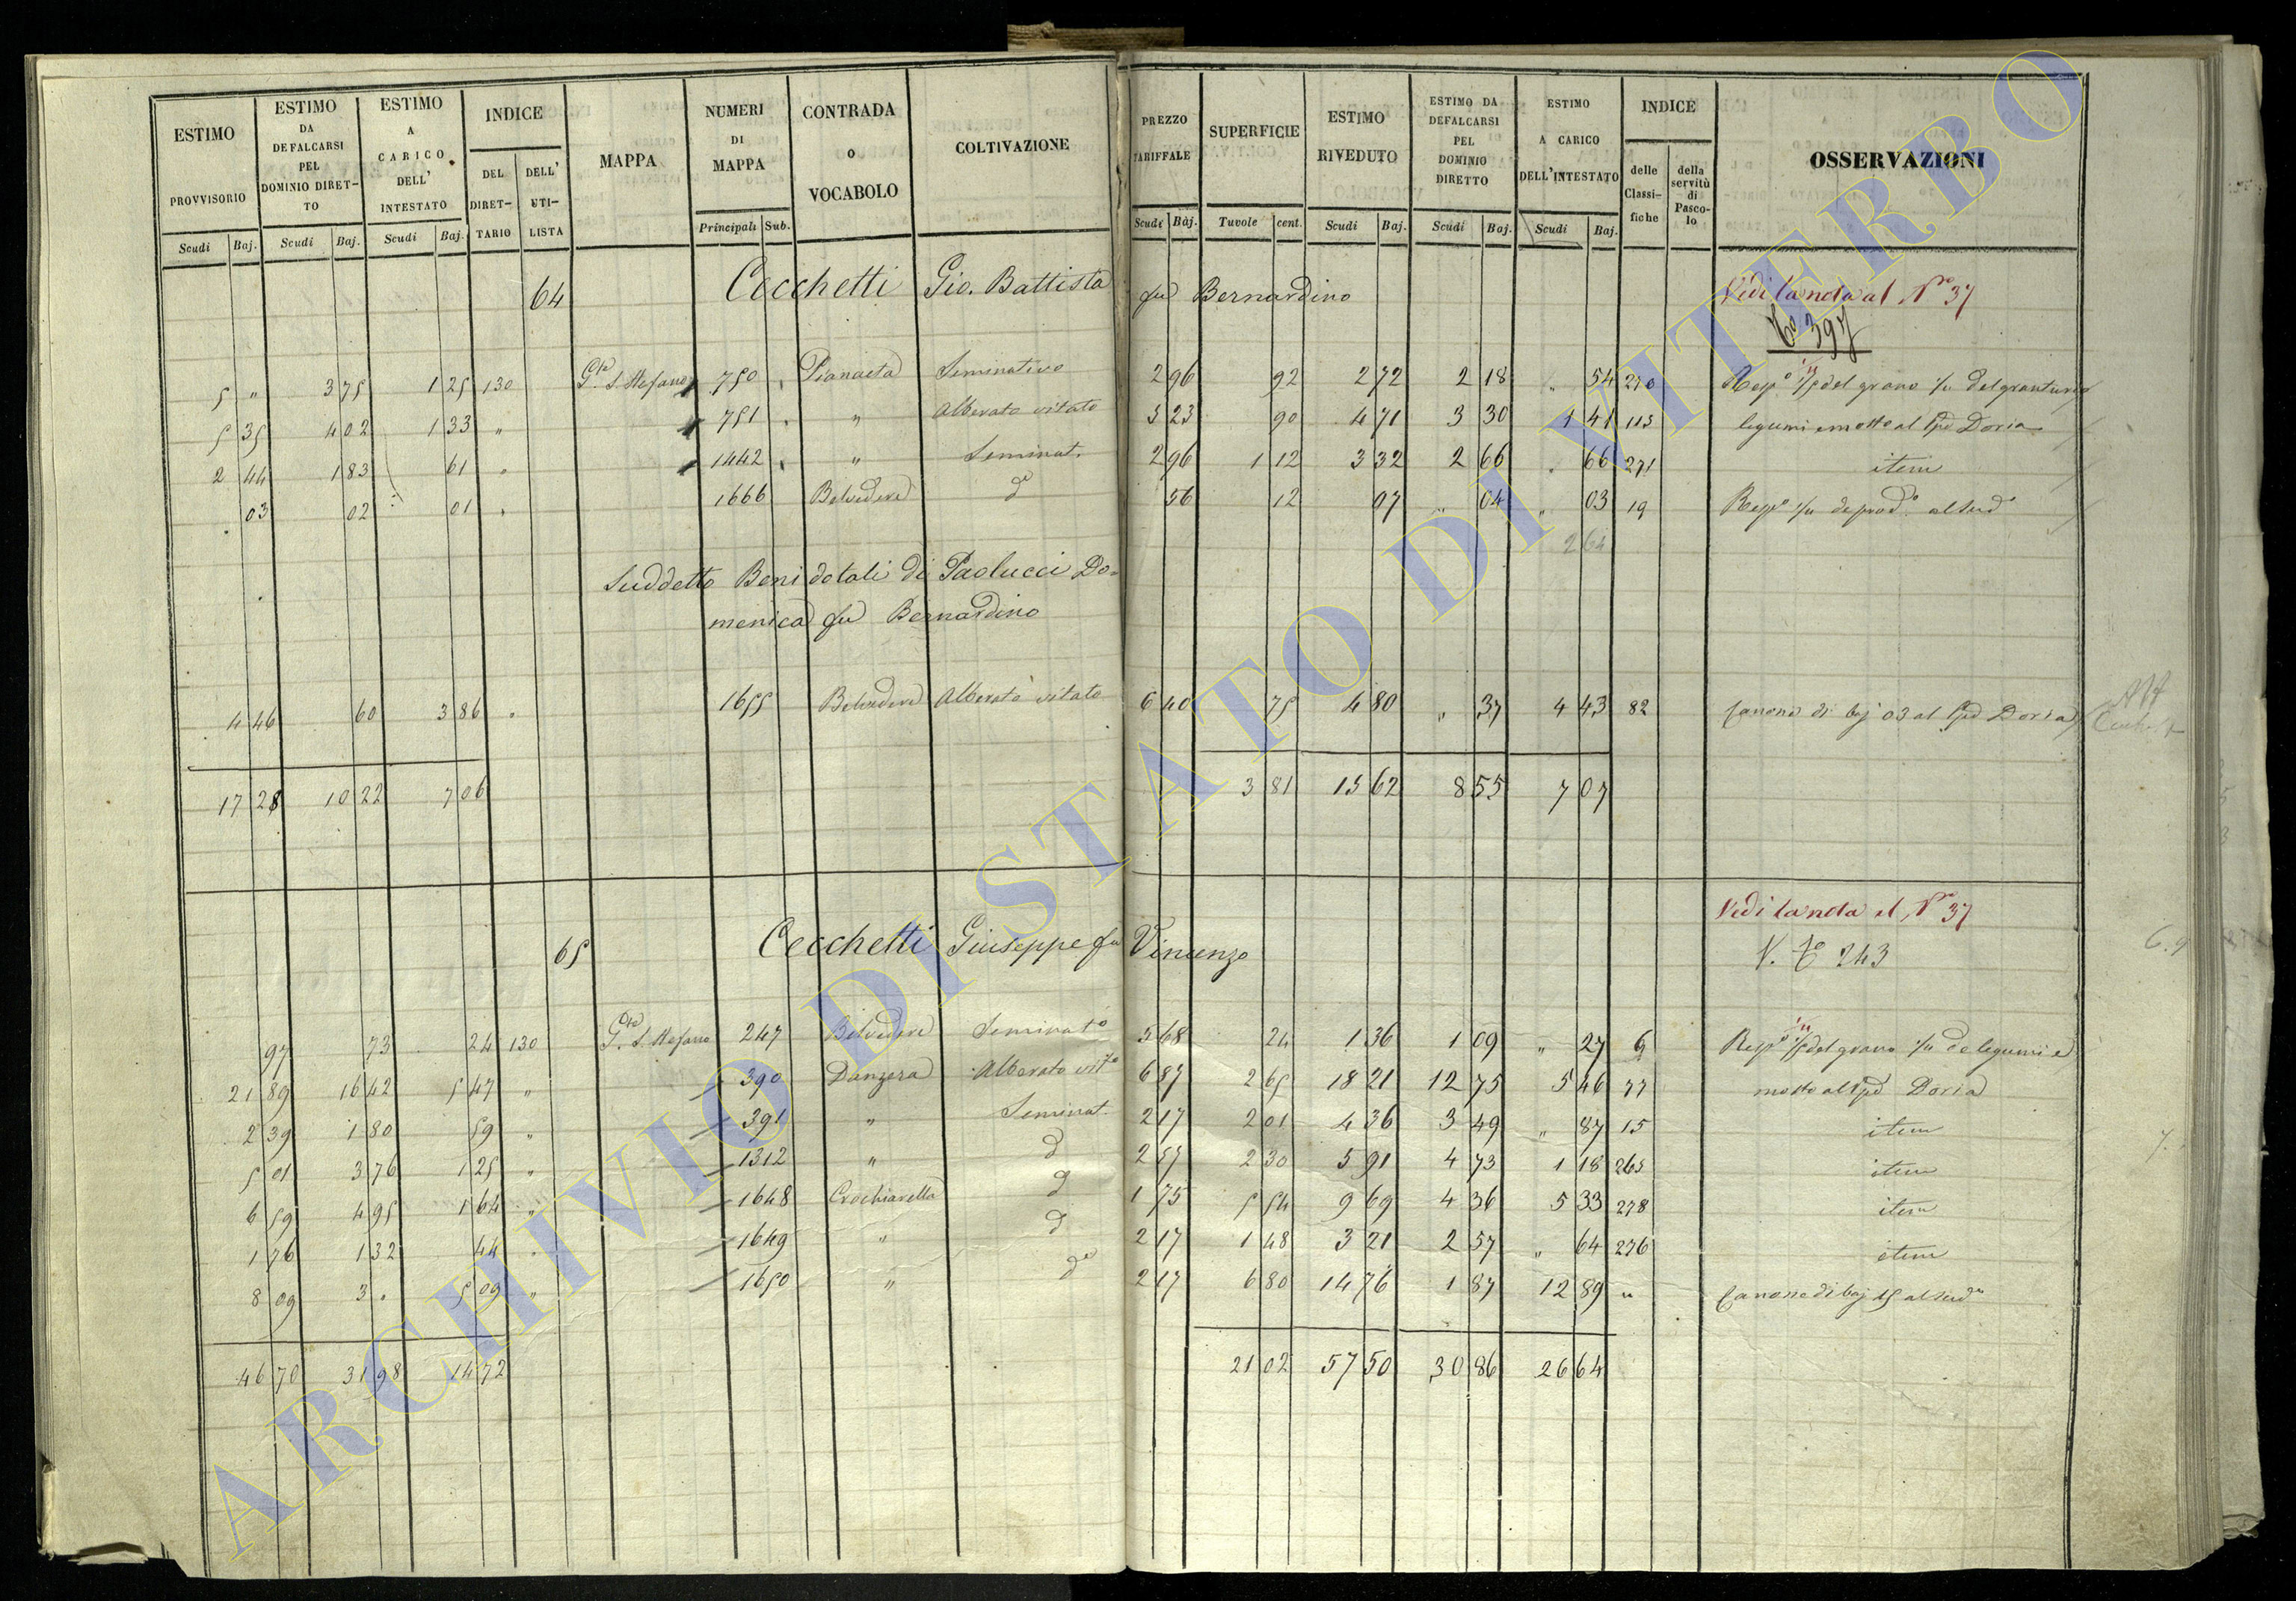 ESTIMO PROVVISORIO Scudi Baj.
ESTIMO DA DEFALCARSI PEL DOMINIO DIRET-TO Scudi Baj.
ESTIMO A CARICO DELL' INTESTATO Scudi Baj.
INDICE DEL DIRET-TARIO DELL' UTI-LISTA
MAPPA
NUMERI DI MAPPA Principali Sub.
CONTRADA O VOCABOLO
COLTIVAZIONE
PREZZO TARIFFALE Scudi Baj.
SUPERFICIE Tavole cent.
ESTIMO RIVEDUTO Scudi Baj.
ESTIMO DA DEFALCARSI PEL DOMINIO DIRETTO Scudi Baj.
ESTIMO A CARICO DELL'INTESTATO Scudi Baj.
INDICE delle Classi-fiche della servitù di Pasco-lo
OSSERVAZIONI
64 Cecchetti Gio. Battista fu Bernardino Vedi la nota al Nro 37
to 397
5 " 3 75 1 25 130 Gta S. Stefano 750 Pianaeta Seminativo 2 96 92 2 72 2 18 " 54 270 Rispo 1/5 del grano 1/4 del granturco
5 35 4 02 1 33 " 751 " Alberato vitato 5 23 90 4 71 3 30 1 41 115 legumi e mosto al Ppe Doria
2 44 1 83 61 " 1442 " Seminat. 2 96 1 12 3 32 2 66 " 66 271 item
03 02 01 " 1666 Belvedere do 56 12 07 " 04 " 03 19 Rispo 1/4 de prodi al sudo
2 64
Suddetto Beni dotali di Paolucci Do=
menica fu Bernardino
4 46 60 3 86 " 1655 Belvedere Alberato vitato 6 40 75 4 80 " 37 4 43 82 Canone di baj 03 al Ppe Doria
17 28 10 22 7 06 3 81 15 62 8 55 7 07
65 Cecchetti Giuseppe fu Vincenzo Vedi la nota al Nro 37
V. to 243
97 73 24 130 Gta S. Stefano 247 Belvedere Seminato 5 68 24 1 36 1 09 " 27 6 Rispo 1/5 del grano 1/4 de legumi e
21 89 16 42 5 47 " 390 Danzera Alberato vito 6 87 2 65 18 21 12 75 5 46 77 mosto al Ppe Doria
2 39 1 80 59 " 391 " Seminat. 2 17 2 01 4 36 3 49 " 87 15 item
5 01 3 76 1 25 " 1312 " d 2 57 2 30 5 91 4 73 1 18 265 item
6 59 4 95 1 64 " 1648 Crochiarella d 1 75 5 54 9 69 4 36 5 33 278 item
1 76 1 32 44 " 1649 " d 2 17 1 48 3 21 2 57 " 64 276 item
8 09 3 " 5 09 " 1650 " do 2 17 6 80 14 76 1 87 12 89 " Canone di baj 15 al sudo
46 70 31 98 14 72 21 02 57 50 30 86 26 64
ARCHIVIO DI STATO DI VITERBO